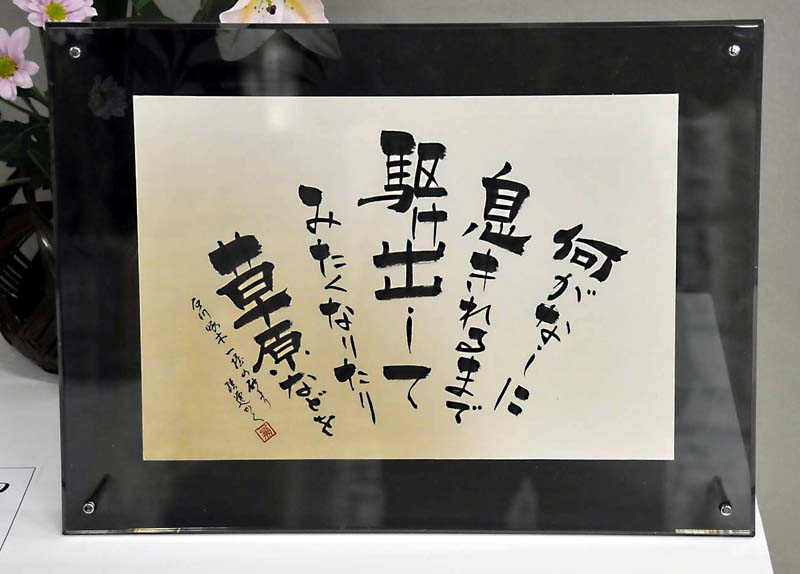 何がなしに
息きれるまで
駆け出して
みたくなりたり
草原などを
石川啄木 一握の砂より